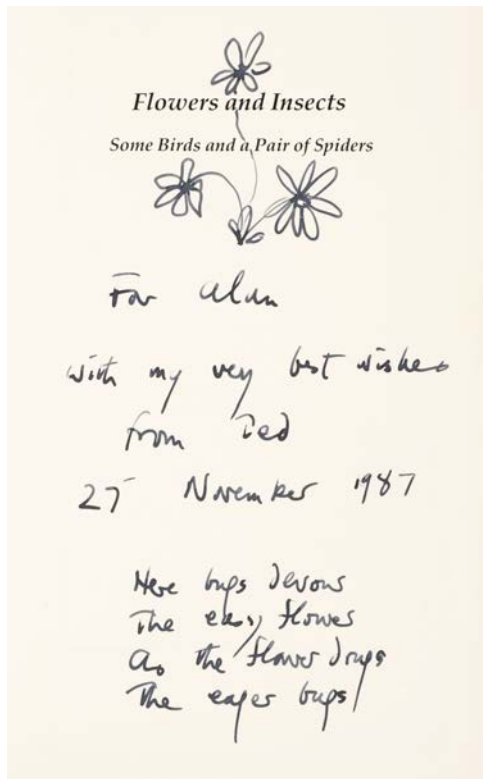 Flowers and Insects
Some Birds and a Pair of Spiders
For Alan
with my very best wishes
from Ted
25 November 1987
Here bugs devour
The easy flower
As the flower drugs
The eager bugs